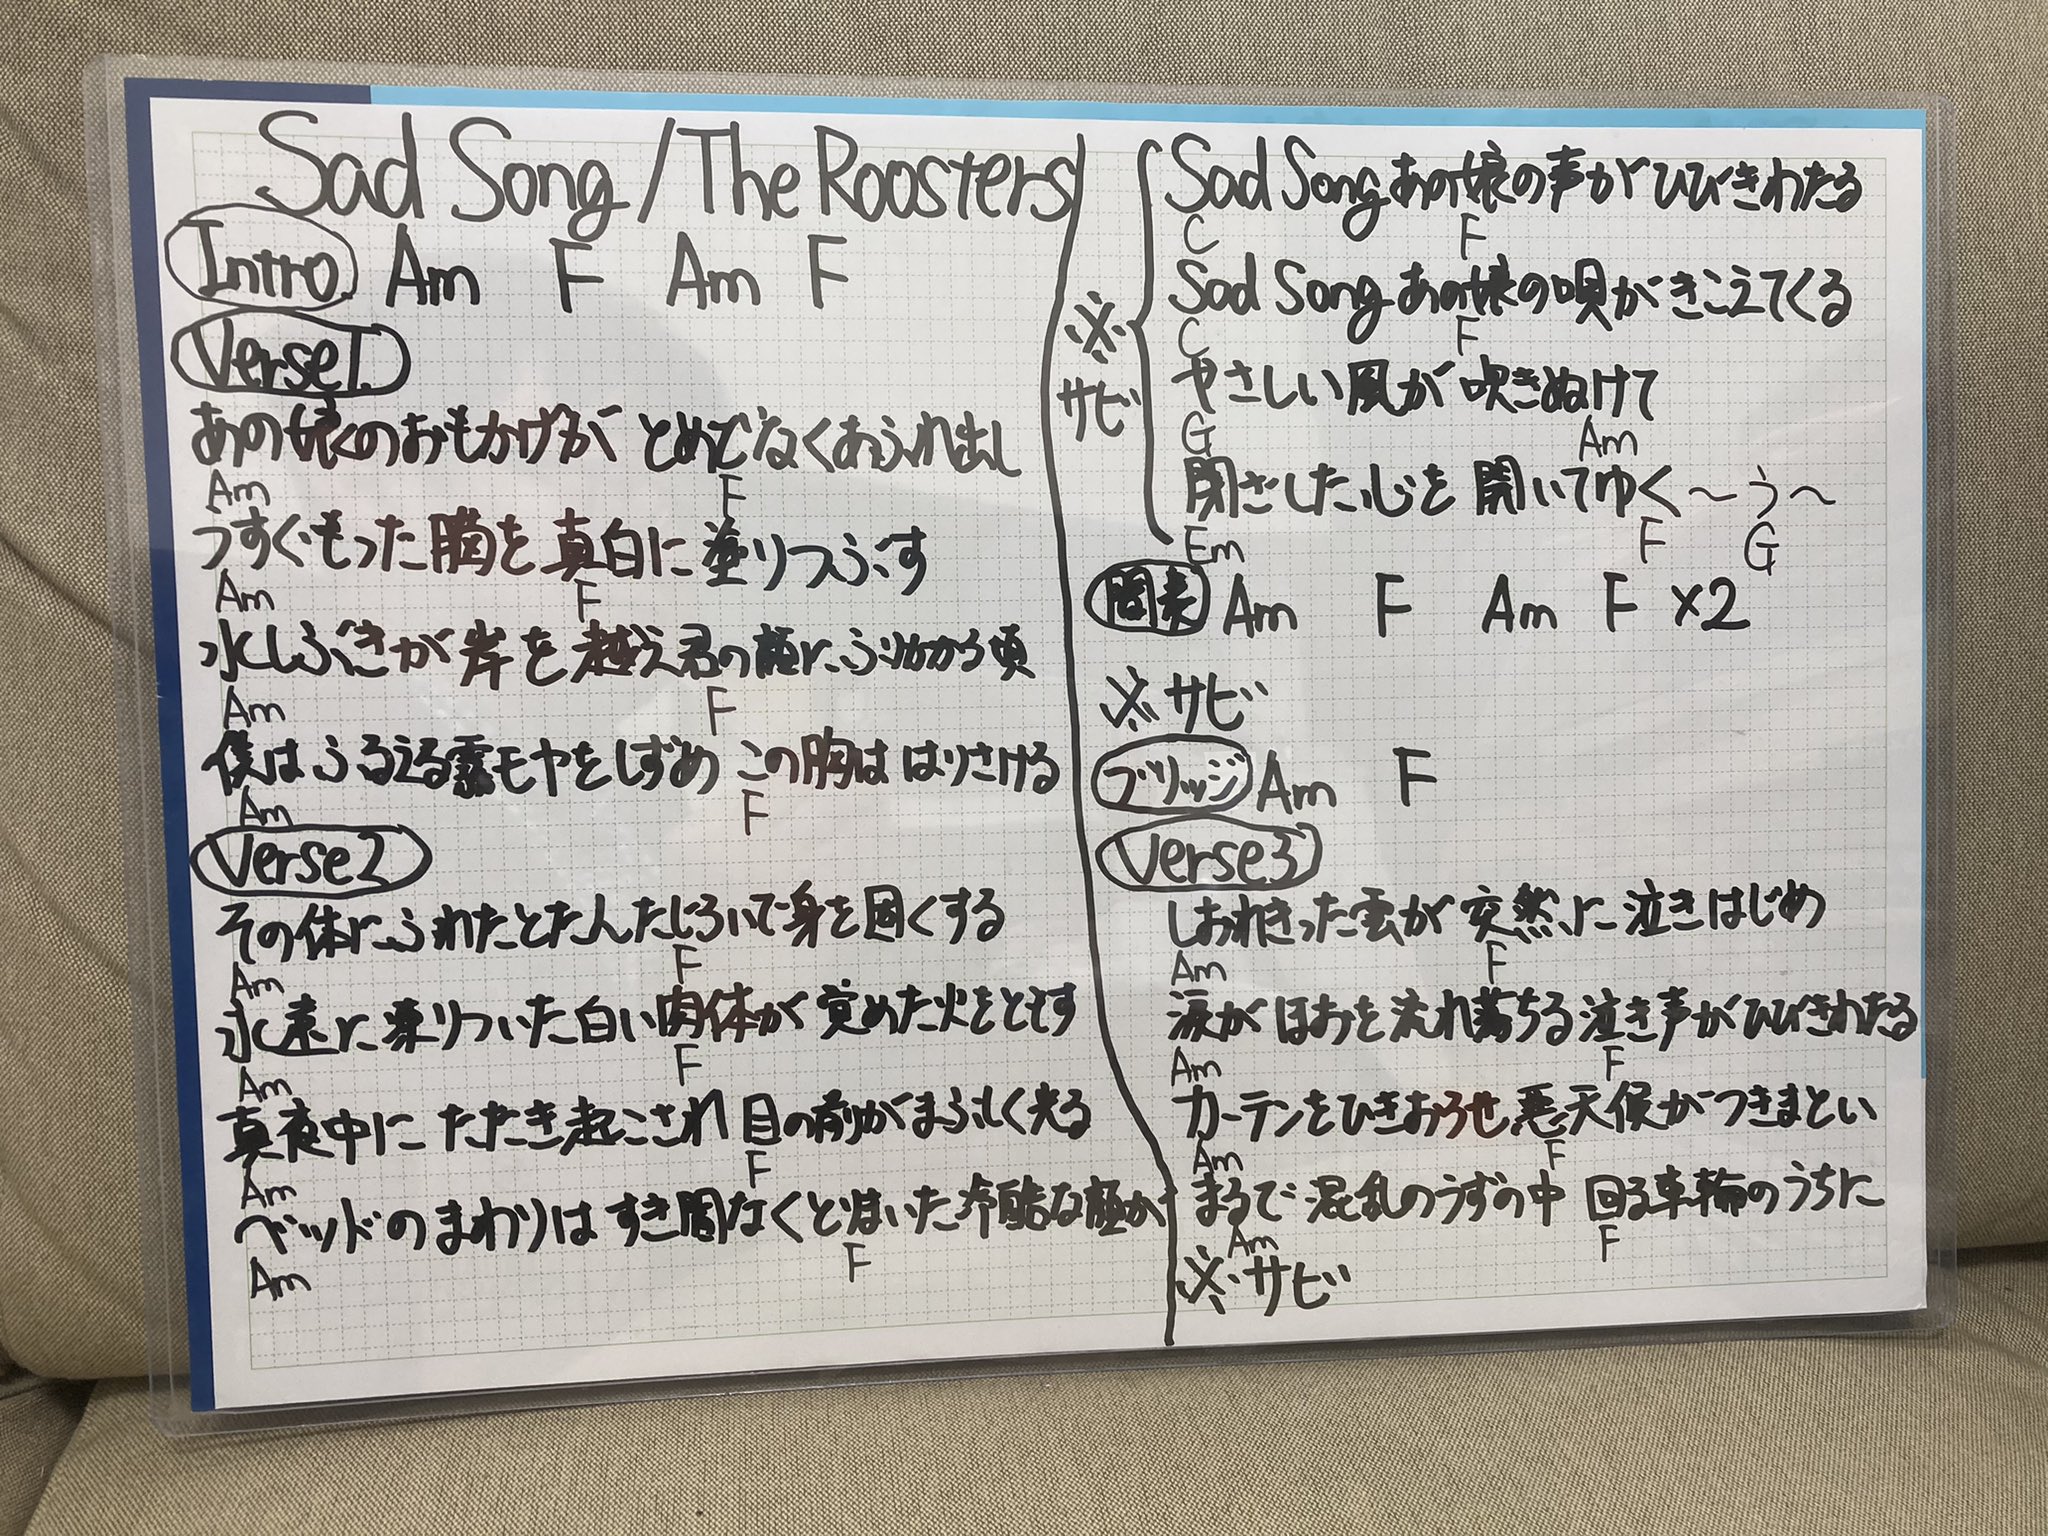 Sad Song / The Roosters
Intro Am F Am F
Verse1
あの娘のおもかげが とめどなくあふれ出し
Am F
うすぐもった脳を真白に塗りつぶす
Am F
水しぶきが岸を越え君の顔にふりかかる頃
Am F
僕はふるえる モヤをしずめ この胸は はりさける
Am F
Verse2
その体にふれたとたんたじろいで身を固くする
Am F
永遠に凍りついた白い肉体が覚めた火をともす
Am F
真夜中にたたき起こされ目の前がまぶしく光る
Am F
ベッドのまわりはすき間なくとじまいた冷酷な顔が
Am F
※サビ
Sad Song あの娘の声がひびきわたる
C F
Sad Song あの娘の唄がきこえてくる
C F
やさしい風が吹きぬけて
G Am
閉ざした心を開いてゆく〜う〜
Em F G
間奏 Am F Am F ×2
※サビ
ブリッジ Am F
Verse3
しおれきった雲が突然に泣きはじめ
Am F
涙がほおを流れ落ちる泣き声がひびきわたる
Am F
カーテンをひきおろせ悪天候がつきまとい
Am F
まるで混乱のうずの中 回る車輪のうちに
Am F
※サビ